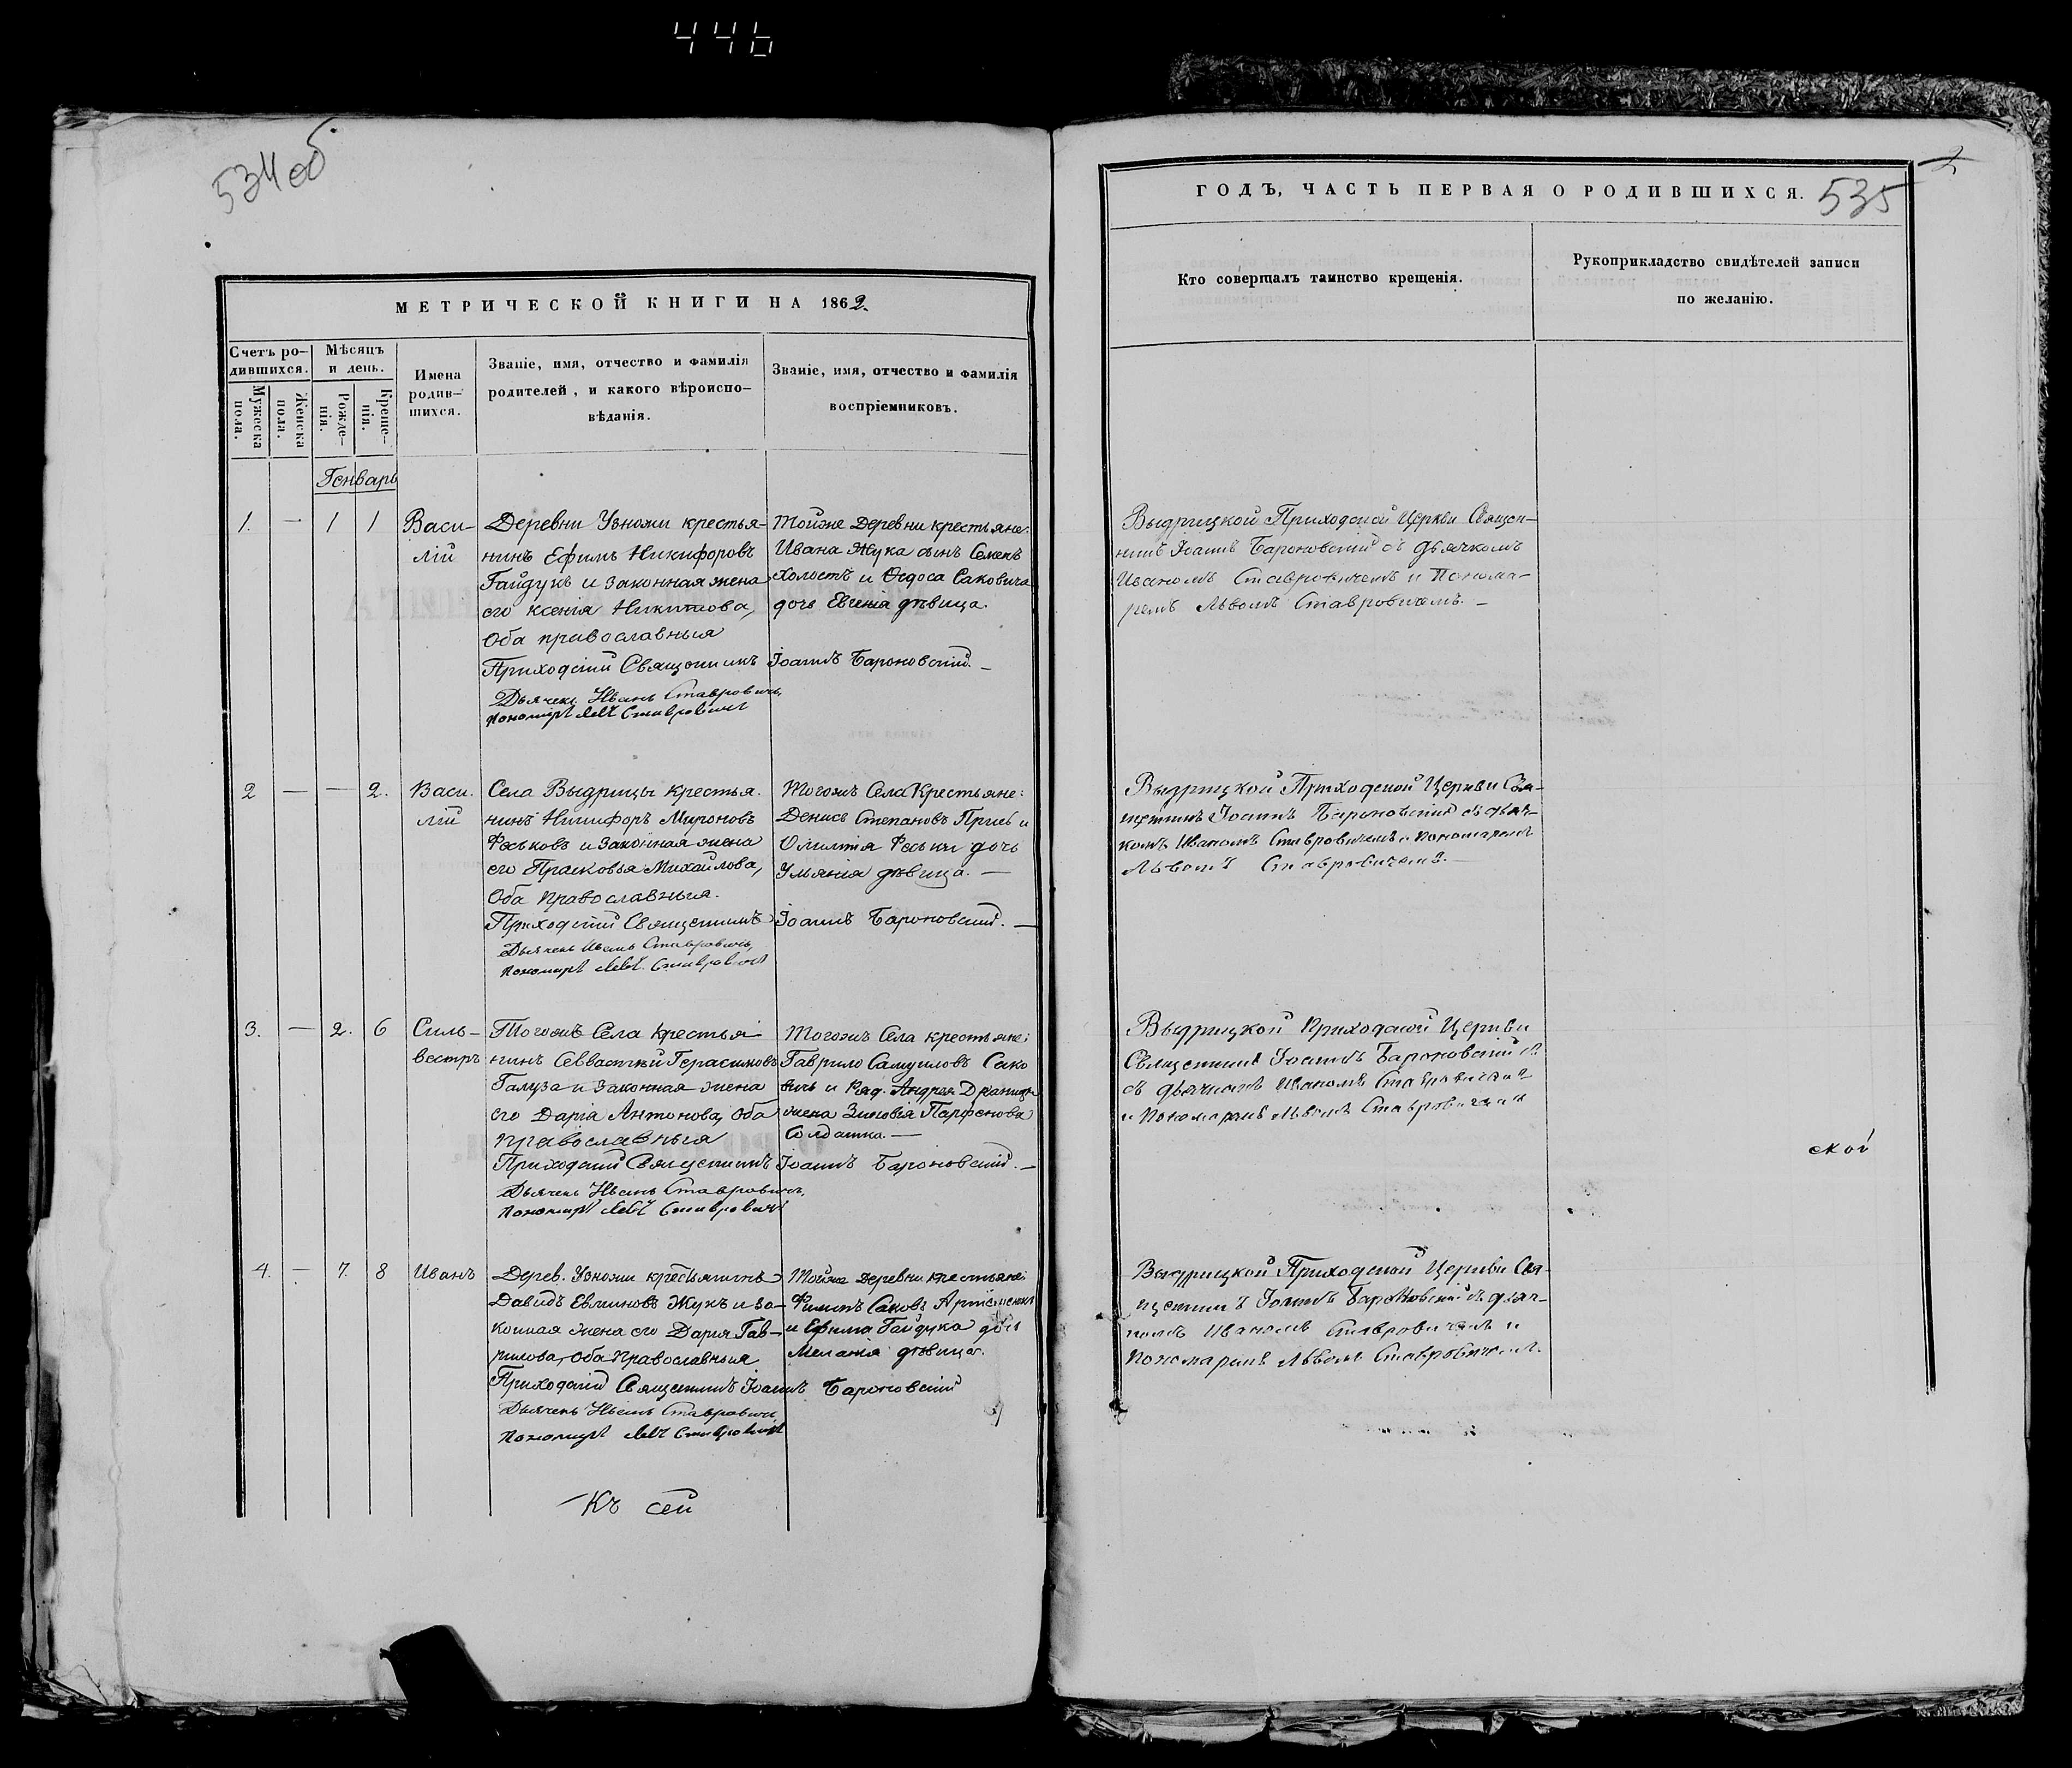 446
534 об
МЕТРИЧЕСКОЙ КНИГИ НА 1862.
Счетъ ро-
дившихся.
Мѣсяцъ
и день.
Мужеска
пола.
Женска
пола.
Рожде-
нія.
Креще-
нія.
Имена
родив-
шихся.
Званіе, имя, отчество и фамилія
родителей, и какого вѣроиспо-
вѣданія.
Званіе, имя, отчество и фамилія
воспріемниковъ.
Генварь
1. — 1 1
Васи-
лій
Деревни Ухвожи крестья-
нинъ Ефимъ Никифоровъ
Гайдукъ и законная жена
его Ксенія Никитова,
Оба православныя
Приходскій Священникъ Іоаннъ Бароновскій. —
Дьячекъ Иванъ Ставровичъ,
Пономарь Левъ Ставровичъ
Тойже деревни крестьяне:
Ивана Жука сынъ Семенъ
холостъ и Федоса Саковича
дочь Евгенія дѣвица.
2 — — 2.
Васи-
лій
Села Выдрицы крестья-
нинъ Никифоръ Мироновъ
Феськовъ и законная жена
его Прасковья Михайлова,
Оба Православныя.
Приходскій Священникъ Іоаннъ Бароновскій. —
Дьячекъ Иванъ Ставровичъ,
Пономарь Левъ Ставровичъ
Тогожъ Села Крестьяне:
Денисъ Степановъ и
Феськи дочь
Ульянія дѣвица. —
3. — 2. 6
Силь-
вестръ
Тогожъ Села Крестья-
нинъ Севастьян Герасимовъ
Галуза и законная жена
его Дарія Антонова, Оба
Православныя
Приходскій Священникъ Іоаннъ Бароновскій. —
Дьячекъ Иванъ Ставровичъ,
Пономарь Левъ Ставровичъ
Тогожъ Села крестьяне:
Гаврило Самуиловъ Сако
вичъ и Ряд. Андрея
жена Зиновія Парфенова
Солдатка. —
4. — 7. 8
Иванъ
Дерев. Ухвожи крестьянинъ
Давидъ Жукъ и за-
конная жена его Дарія Гав-
рилова, Оба Православныя
Приходскій Священникъ Іоаннъ Бароновскій
Дьячекъ Иванъ Ставровичъ
Пономарь Левъ Ставровичъ
Тойже Деревни крестьяне:
Саковъ
и Ефима Гайдука дочь
Меланія дѣвица.
Къ сей
ГОДЪ, ЧАСТЬ ПЕРВАЯ О РОДИВШИХСЯ.
535
Кто совершалъ таинство крещенія.
Рукоприкладство свидѣтелей записи
по желанію.
Выдрицкой Приходской Церкви Священ-
никъ Іоаннъ Бароновскій съ дьячкомъ
Иваномъ Ставровичемъ и Понома-
ремъ Львомъ Ставровичемъ. —
Выдрицкой Приходской Церкви Свя-
щенникъ Іоаннъ Бароновскій съ дьяч-
комъ Иваномъ Ставровичемъ и Пономаремъ
Львомъ Ставровичемъ. —
Выдрицкой Приходской Церкви
Священникъ Іоаннъ Бароновскій
съ дьячкомъ Иваномъ Ставровичемъ
и Пономаремъ Львомъ Ставровичемъ
ской
Выдрицкой Приходской Церкви Свя-
щенникъ Іоаннъ Бароновскій съ дьяч-
комъ Иваномъ Ставровичемъ и
Пономаремъ Львомъ Ставровичемъ.